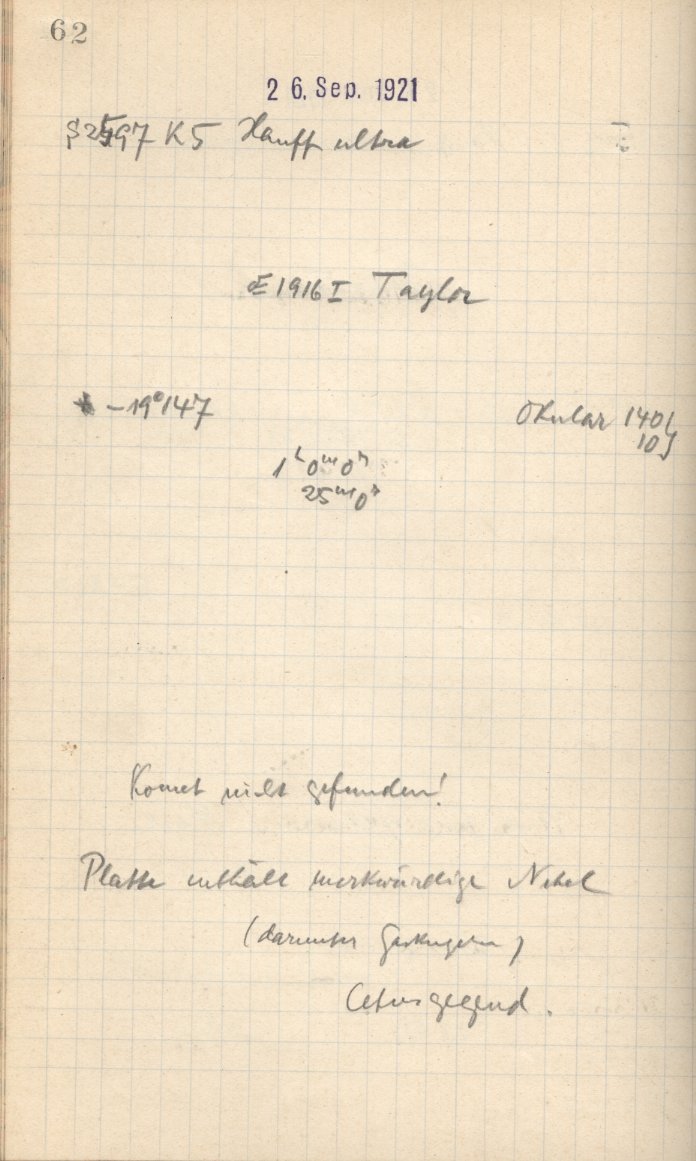 62
26. Sep. 1921
K5 Hauff ultra
1916 I Taylor
* –19°147
Okular 140
10
1ʰ 0ᵐ 0ˢ
25ᵐ 0ˢ
Komet nicht gefunden!
Platte enthält merkwürdige Nebel
(darunter Gaskugeln)
Cetusgegend.